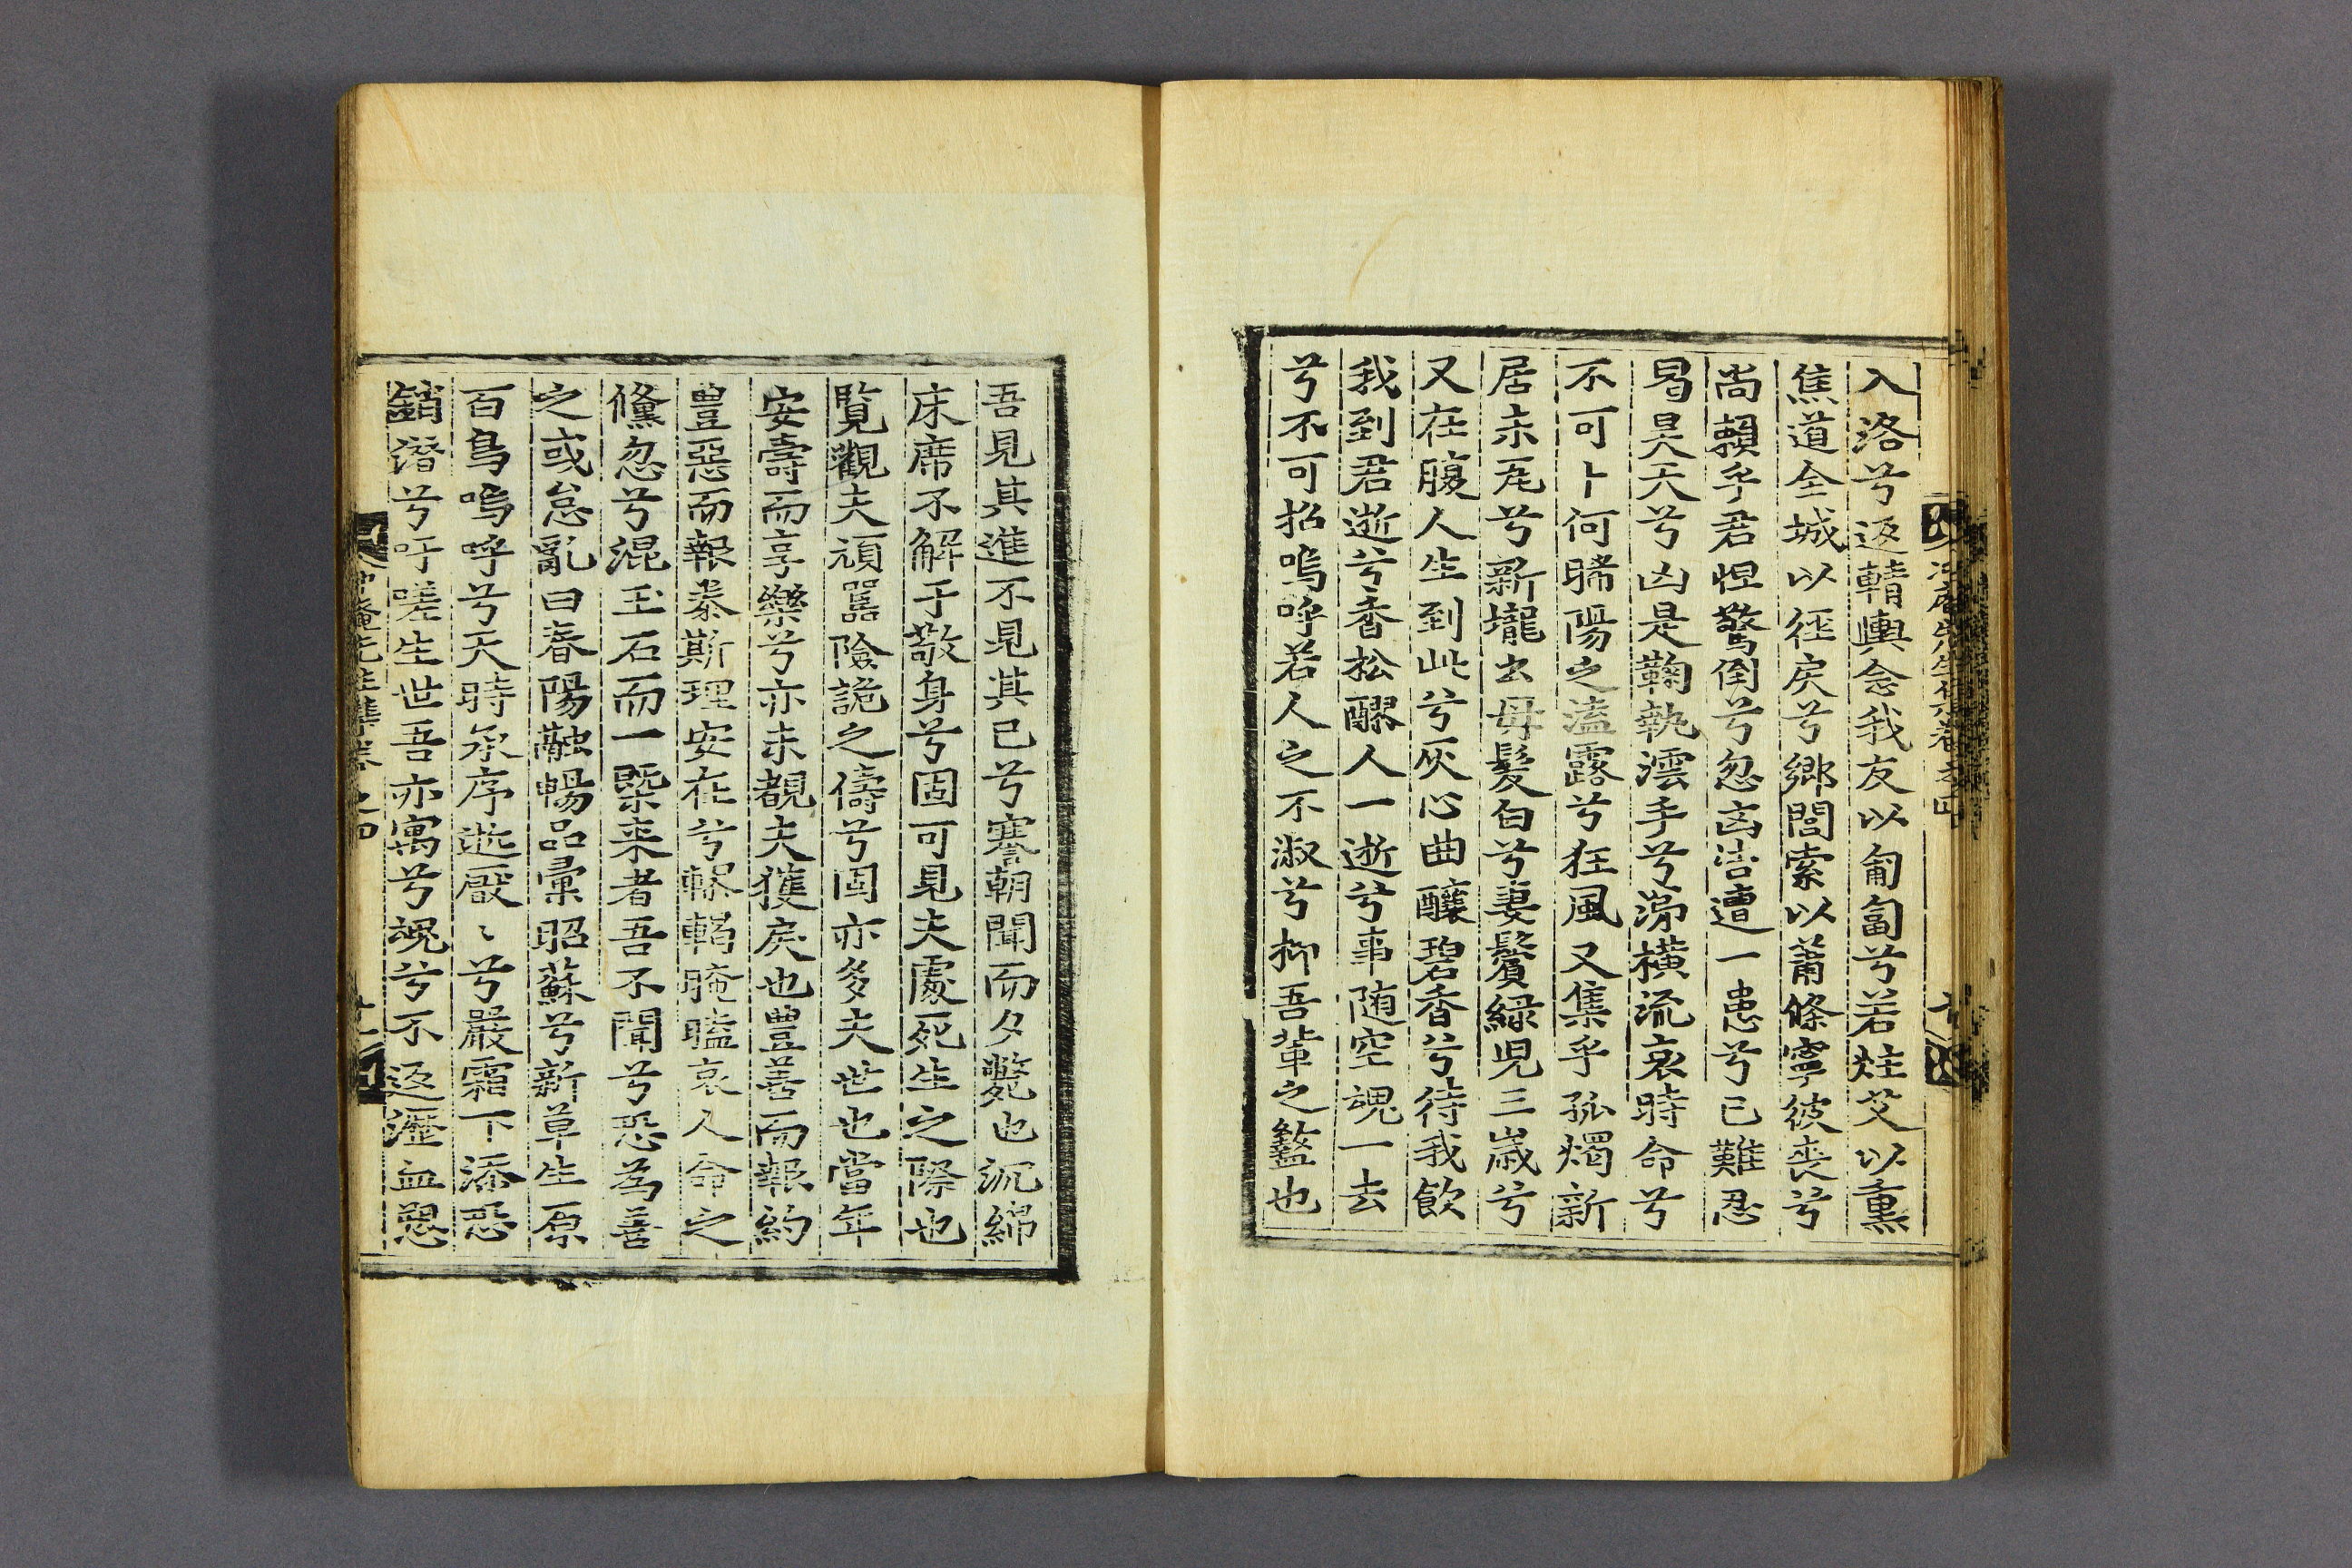 冲庵先生集卷之四
入洛兮返轅輿念我友以匍匐兮若炷艾以熏
焦道全城以徑戾兮鄉閭索以蕭條寧彼喪兮
尚賴乎君怛驚倒兮忽凶告遭一患兮已難忍
曷昊天兮凶是鞠執澐手兮涕橫流哀時命兮
不可卜何晞陽之溘露兮狂風又集乎孤燭新
居未瓦兮新壠玄母髮白兮妻鬢綠児三歲兮
又在腹人生到此兮灰心曲釀碧香兮待我飲
我到君逝兮香松醪人一逝兮事随空魂一去
兮不可招嗚呼若人之不淑兮抑吾軰之簦也
吾見其進不見其已兮謇朝聞而夕斃也沉綿
床席不解于敬身兮固可見夫處死生之際也
覧觀夫頑嚚險詭之儔兮固亦多夫世也當年
安壽而享樂兮亦未覩夫獲戾也豊善而報約
豊惡而報泰斯理安在兮轇轕晻曀哀人命之
儵忽兮混玉石而一槩来者吾不聞兮恐為善
之或怠亂曰春陽融暢品彙昭蘇兮新草生原
百鳥嗚呼兮天時汞序逝厭〻兮嚴霜下添恐
銷潛兮吁嗟生世吾亦寓兮魂兮不返瀝血愬
冲庵先生集卷之四